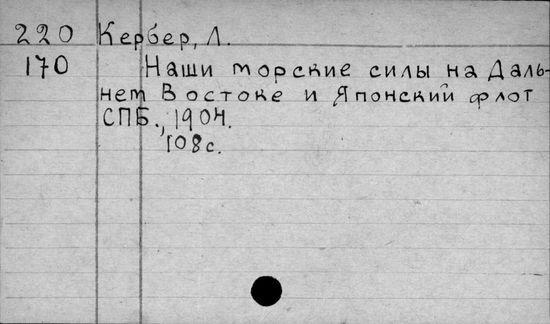 220 Кербер, Л.
170 Наши морские силы на Даль-
нем Востоке и Японский флот
СПБ., 1904.
108с.